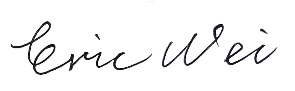 Eric Wei